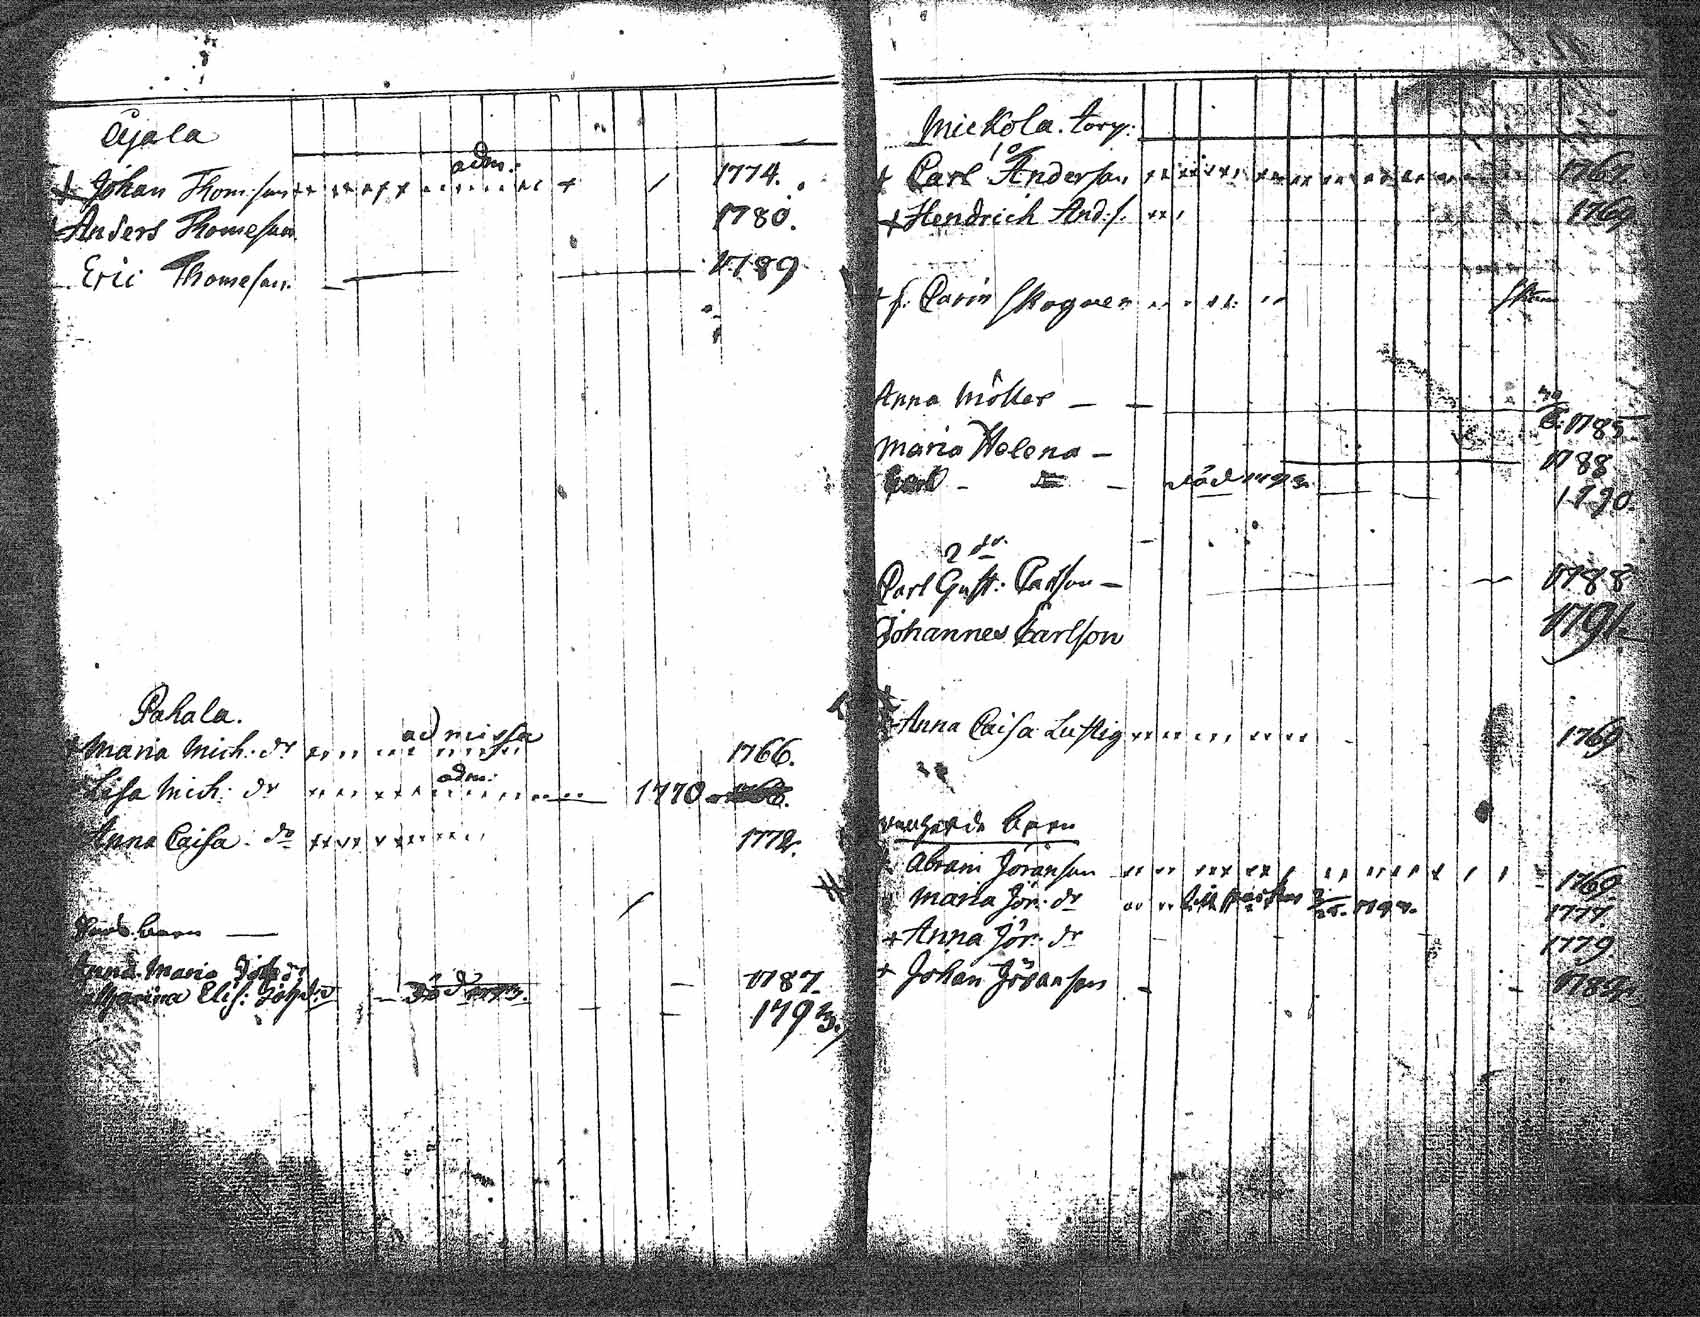 Ojala
adm:
+ Johan Thom:son 1774.
+ Anders Thomeson 1780.
Eric Thomeson. 1789
Pahala.
admissa
+ Maria Mich: dr 1766.
adm:
Lisa Mich: dr 1770
Anna Caisa do 1772.
barn
Anna Maria Joh dr 1787.
Catharina Elis: Joh dr död 1793. 1793.
Mickola. torp:
1o
+ Carl Anderson 1762
+ Hendrich And: s. 1769
+ f. Carin Skogner
Anna Möller 1785
Maria Helena 1788
Carl död 1793. 1790.
2 dr.
Carl Gust: Carlson 1788
Johannes Carlson 1791.
+ Anna Caisa Lustig 1769
barn
Abram Jöranson 1769
Maria Jör: dr 1777
+ Anna Jör: dr 1779
+ Johan Jöranson